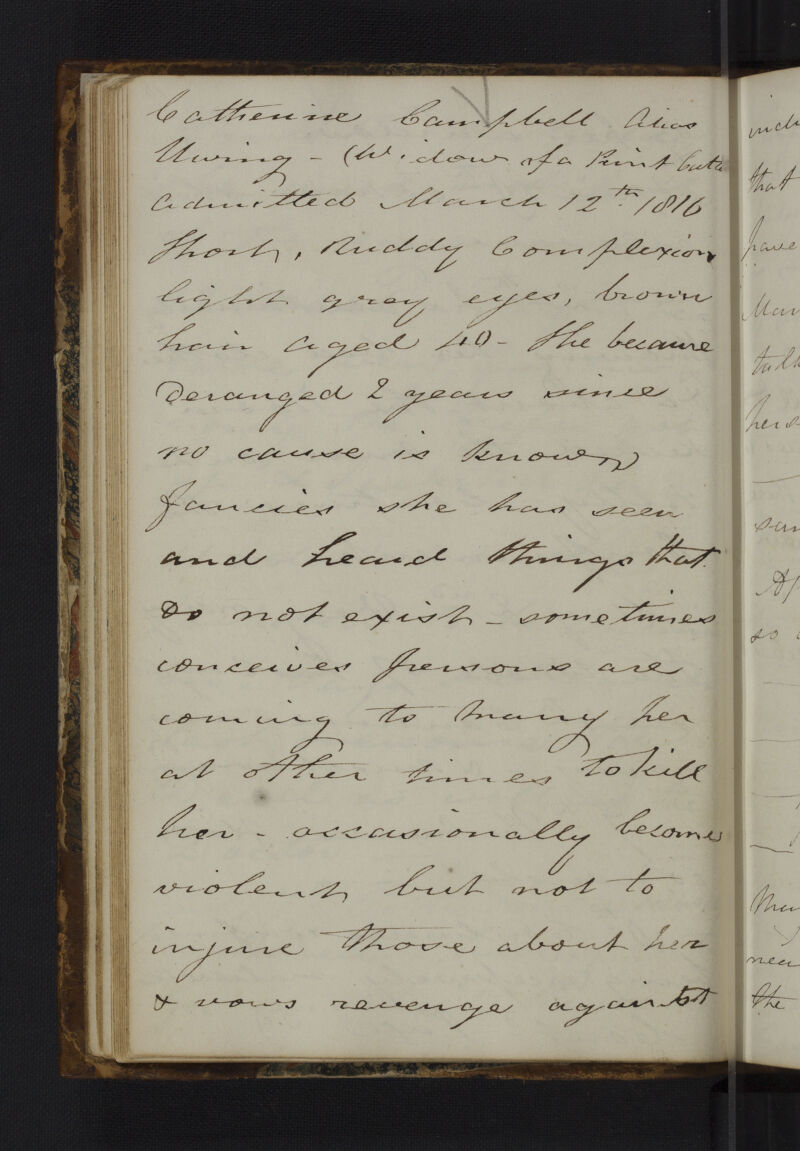 Catherine Campbell Alias
Uwing - (Widow of a Print Cutter
admitted March 12th. 1816
Short, Ruddy Complexion
light grey eyes, brown
hair aged 40 - She became
Deranged 2 years since
no cause is known
fancies she has seen
and heard things that
do not exist - sometimes
conceives persons are
coming to marry her
at other times to kill
her - occasionally becomes
violent but not to
injure those about her
& vows revenge against
that
have
talk
so
the